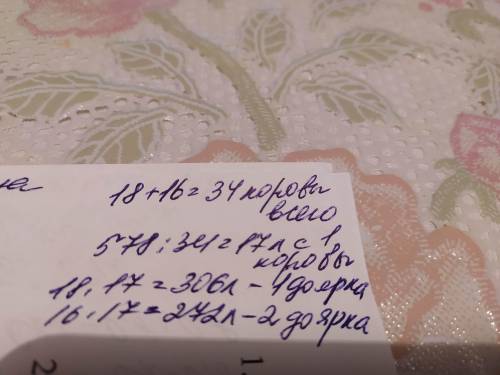 18+16=34 коровы
всего
578:34=17л с 1
коровы
18·17=306л-1 доярка
16·17=272л-2 доярка
2
1.